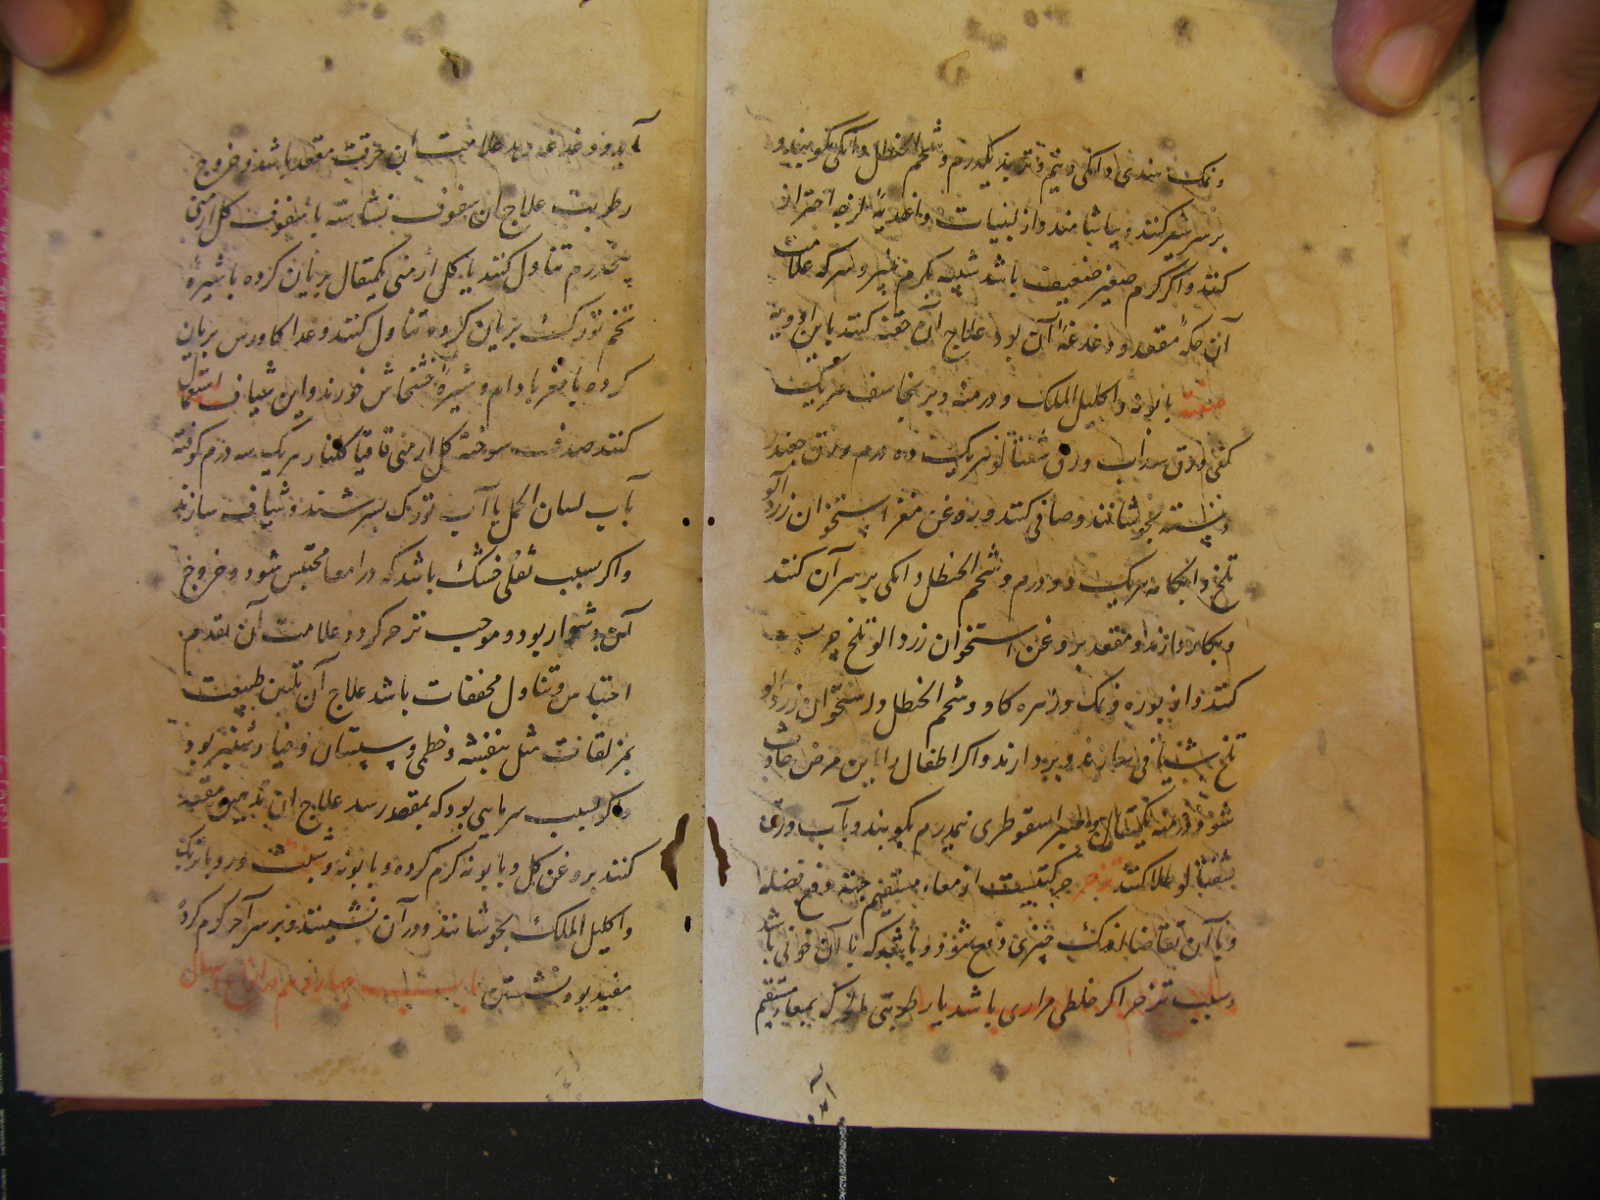 ونمک هندی دانکی ونیم وتربد یکدرم وشحم الحنظل دانکی بکوبند و
بر سر شیر کنند وبیاشامند واز لبنیات واغذیهٔ لزجه احتراز
کنند واکر کرم صغیر ضعیف باشد شبیه بکرم پنیر وسرکه علامت
آن حکهٔ مقعد ودغدغهٔ آن بود علاج آن حقنه کنند باین ادویه
بابونه واکلیل الملک ودرمنه وبرنجاسف هریک
کفی ورق سداب ورق شفتالو هریک ده درم ورق چغندر
بجوشانند وصافی کنند وروغن مغز استخوان زردالو
تلخ هریک دو درم وشحم الحنظل دانکی بر سر آن کنند
وبکار دارند ومقعد بروغن استخوان زردالو تلخ چرب
کنند واز بوره ونمک وزهره کاو وشحم الحنظل واستخوان زردالو
تلخ شیافی بردارند واکر اطفال را این مرض حادث
شود درمنه یکمثقال وصبر اسقوطری نیمدرم بکوبند وبآب ورق
شفتالو طلا کنند زحیر حرکتیست از معاء مستقیم جهة دفع فضله
وبا آن تقاضا اندک چیزی دفع شود وباشد که با آن خونی باشد
وسبب تزحر اکر خلطی مراری باشد یا رطوبتی مالح که بمعاء مستقیم
آید ودغدغه دهد علامت این حرقت مقعد باشد وخروج
رطوبت علاج ان سفوف نشاسته یا سفوف کل ارمنی
پنجدرم تناول کنند یا کل ارمنی یکمثقال بریان کرده با شیرهٔ
تخم تورک بریان کرده تناول کنند وغذا کاورس بریان
کرده با مغز بادام وشیرهٔ خشخاش خورند واین شیاف استعمال
کنند صدف سوخته کل ارمنی قاقیا کلنار هریک سه درم کوفته
بآب لسان الحمل یا آب تورک بسرشند وشیاف سازند
واکر بسبب ثفلی خشک باشد که در امعا محتبس شود وخروج
آن دشوار بود وموجب تزحر کردد علامت آن تقدم
احتباس وتناول مجففات باشد علاج آن تلیین طبیعت
بمزلقات مثل بنفشه وخطمی وسپستان وخیار شنبر بود
واکر بسبب سرمایی بود که بمقعد رسد علاج ان تدهین مقعد
کنند بروغن کل وبابونه کرم کرده وبابونه وشبت
واکلیل الملک بجوشانند ودر آن نشینند وبر سر آجر کرم کرده
مفید بود نشستن